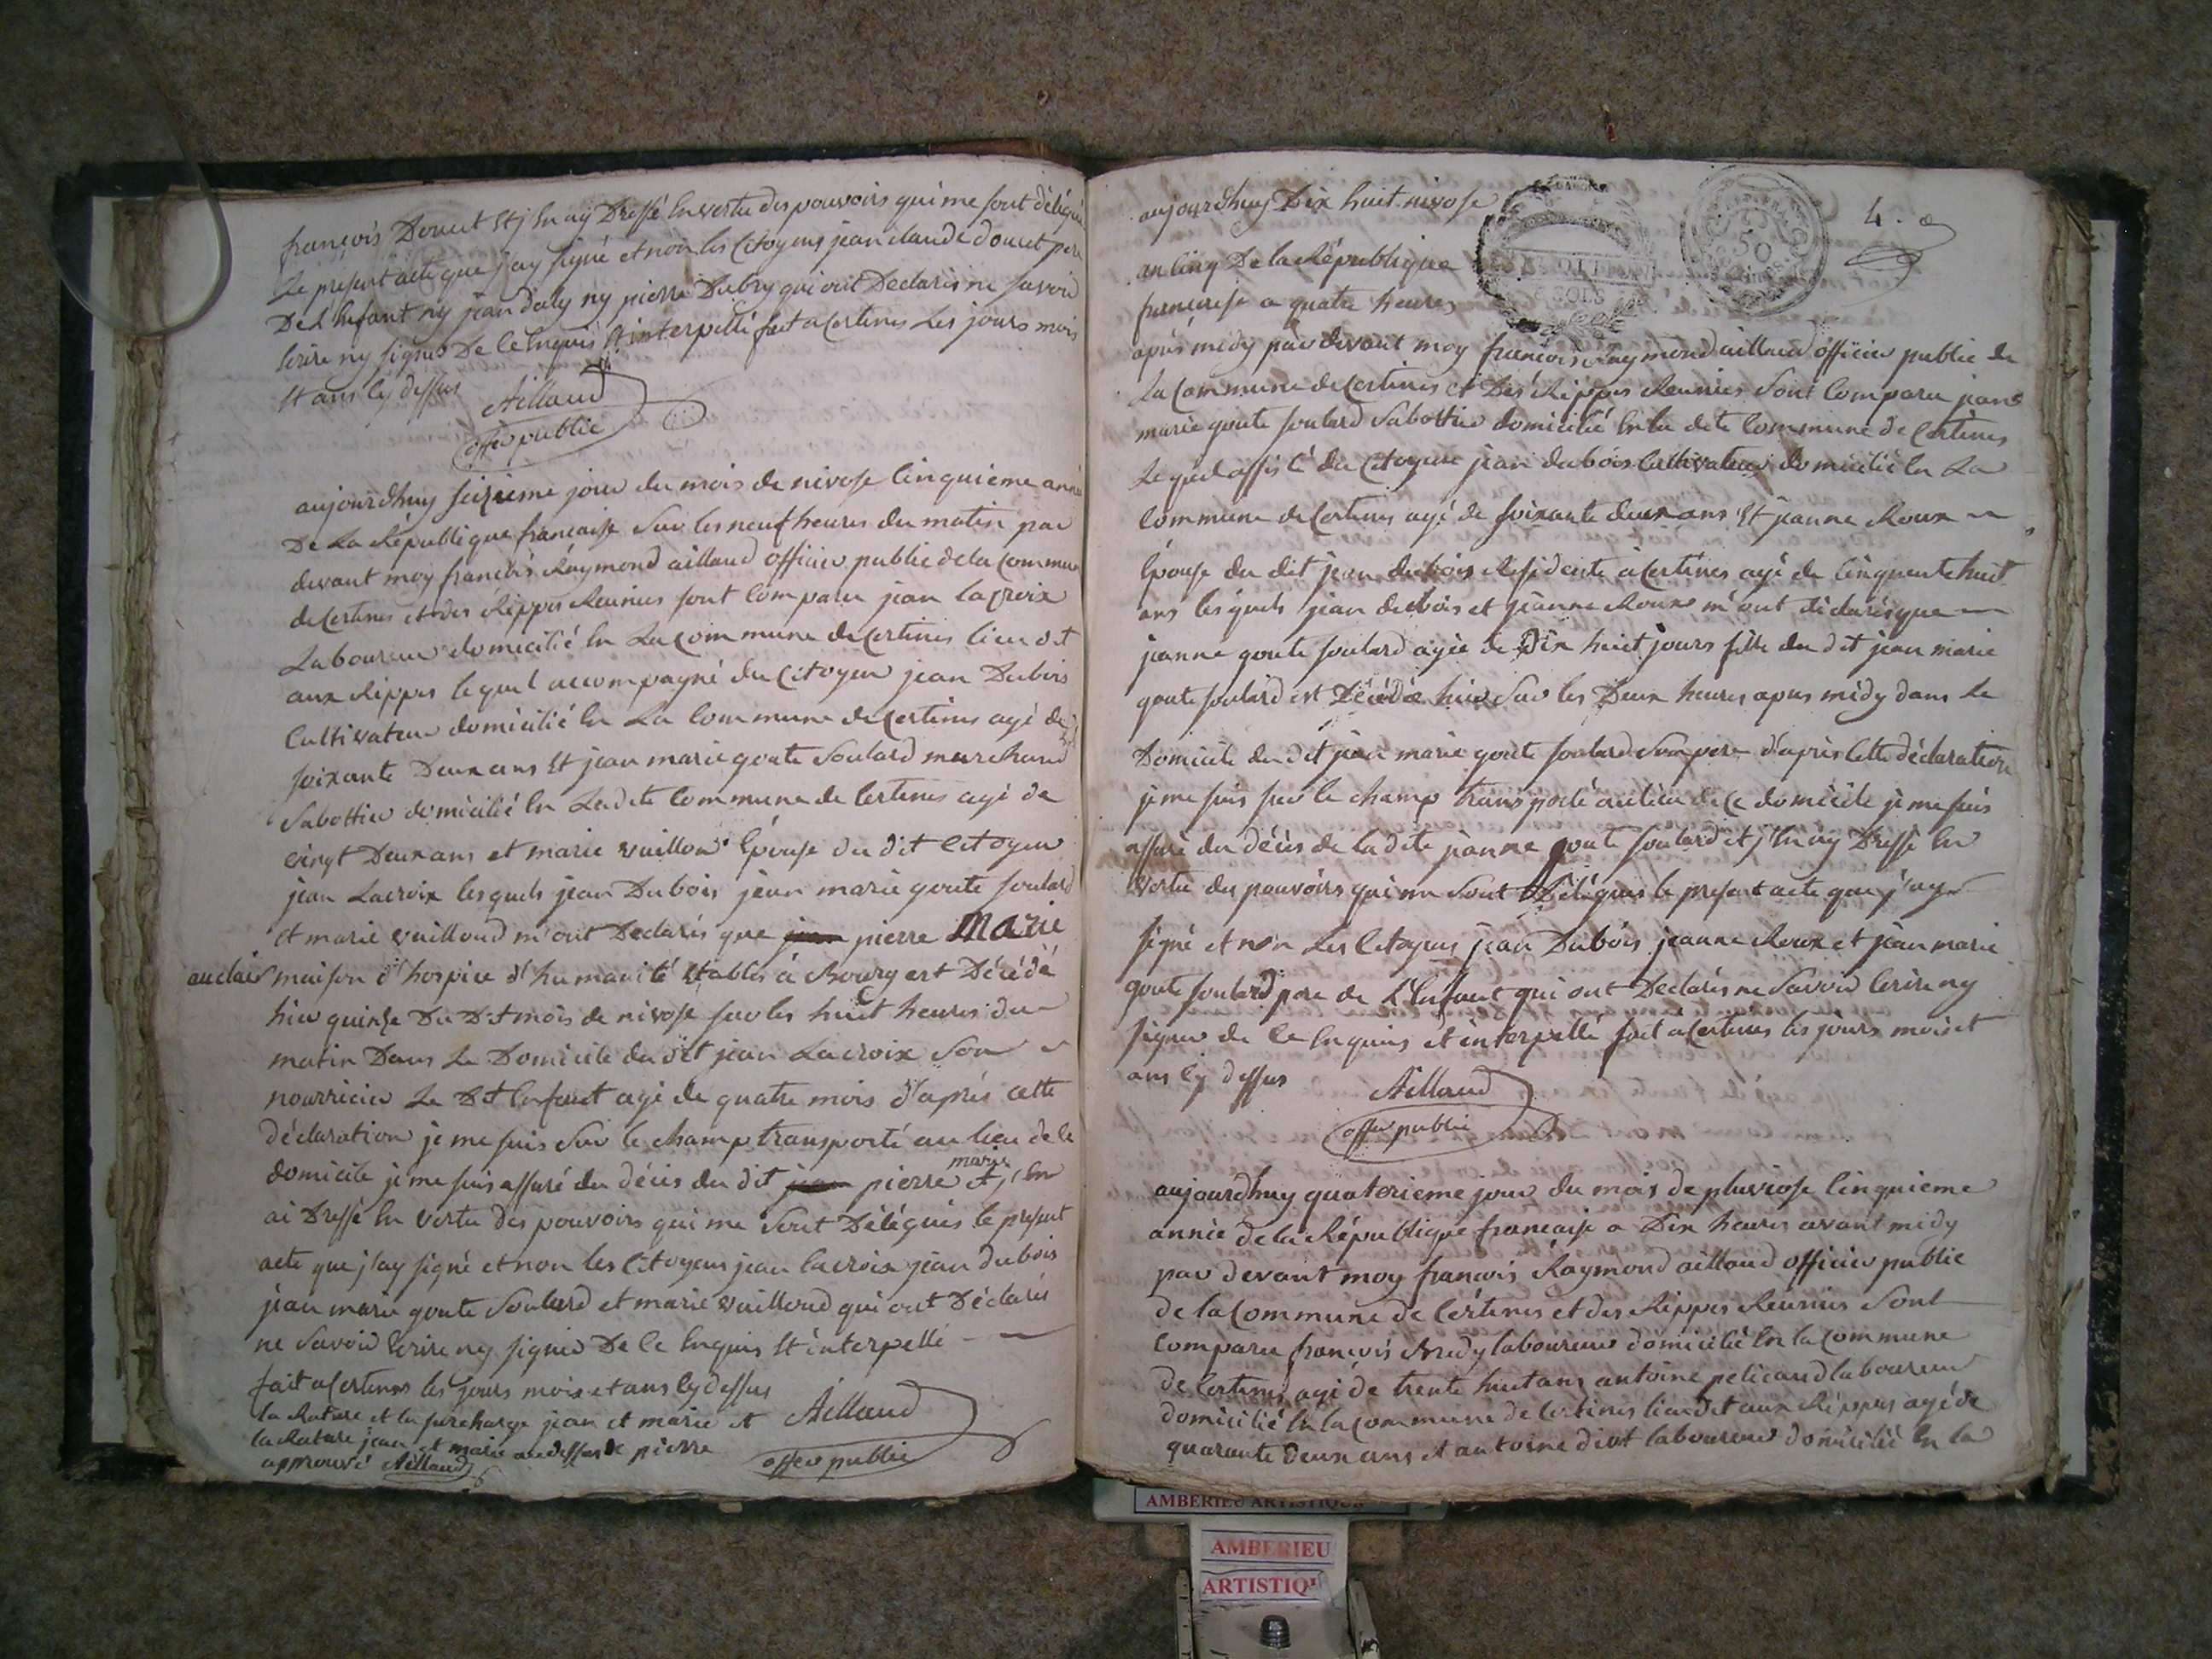 françois Doucet et j'en ay Dressé en vertu des pouvoirs qui me sont délégués
Le present acte que j'ay signé et non les Citoyens jean claude doucet pere
De L'enfant ny jean daly ny pierre Dubry qui ont Declarés ne savoir
Ecrire ny signer De ce Enquis et interpellé fait a Certines Les jours mois
Et ans cy dessus Aillaud
offer public
aujourdhuy seizieme jour du mois de nivose cinquieme anné
De La République francaise Sur les neuf heures du matin par
devant moy francois Raymond aillaud officier public de la commune
de Certines et des Rippes Reunies sont comparu jean lacroix
Laboureur domicilié En La Commune de Certines lieu dit
aux Rippes lequel accompagné du Citoyen jean Dubois
Cultivateur domicilié En La Commune de Certines agé de
soixante Deux ans Et jean marie goute Soulard marchand
Sabottier domicilié En Ladite Commune de Certines agé de
vingt Deux ans et marie vuilloud Epouse du dit Citoyen
jean Lacroix lesquels jean Dubois jean marie goute soulard
Et marie vuilloud m'ont Declarés que jean pierre Marie
au clair maison d'hospice d'humanité Etablis à Bourg est Décédé
hier quinze Du Dit mois de nivose sur les huit heures du
matin Dans Le Domicile du dit jean Lacroix Son
nourricier Le Dit Enfant agé de quatre mois d'après cette
déclaration je me suis Sur le champ transporté au lieu de le
domicile je me suis assuré du décès du dit jean pierre marie et j'En
ai Dressé En vertu des pouvoirs qui me Sont Délégués le present
acte que j'ay signé et non les Citoyens jean lacroix jean dubois
jean marie goute Soulard et marie vuilloud qui ont Déclarés
ne Savoir Ecrire ny signer De ce Enquis Et interpellé
fait a Certines les jours mois et ans cy dessus
la Rature et la surcharge jean et marie et Aillaud
la Rature jean et marie au dessus de pierre offer public
approuvé Aillaud
4.
aujourdhuy Dix huit nivose
an cinq De la République
francaise a quatre heures
après midy par devant moy francois Raymond aillaud officier public de
La Commune de Certines et Des Rippes Reunies Sont Comparu jean
marie goute soulard Sabottier domicilié En la dite Commune de Certines
Lequel assisté du Citoyen jean dubois Cultivateur domicilié En La
Commune de Certines agé de soixante deux ans Et jeanne Roux
Epouse du dit jean dubois Residente à Certines agé de cinquante huit
ans lesquels jean dubois et jeanne Roux m'ont déclarés que
jeanne goute soulard agée de Dix huit jours fille du dit jean marie
goute soulard est Décédée hier Sur les Deux heures apres midy dans Le
Domicile du dit jean marie goute soulard Son pere d'après cette déclaration
je me suis sur le champ transporté au lieu de ce domicile je me suis
assuré du décès de ladite jeanne goute soulard et j'En ay Dressé En
vertu des pouvoirs qui me Sont Délégués le present acte que j'ay
signé et non Les Citoyens jean Dubois jeanne Roux et jean marie
goute soulard pere de L'Enfant qui ont Declarés ne Savoir Ecrire ny
signer de ce Enquis et interpellé fait a Certines les jours mois et
ans cy dessus Aillaud
offer public
aujourdhuy quatorieme jour du mois de pluviose cinquieme
année de la République francaise a Dix heures avant midy
par devant moy francois Raymond aillaud officier public
de la Commune de Certines et des Rippes Réunies Sont
Comparu francois Bredy laboureur domicilié En la Commune
de Certines agé de trente huit ans antoine pelicand laboureur
domicilié En la Commune de Certines lieu dit aux Rippes agé de
quarante Deux ans et antoine diot laboureur domicilié En la
AMBERIEU ARTISTIQUE
AMBERIEU
ARTISTIQU